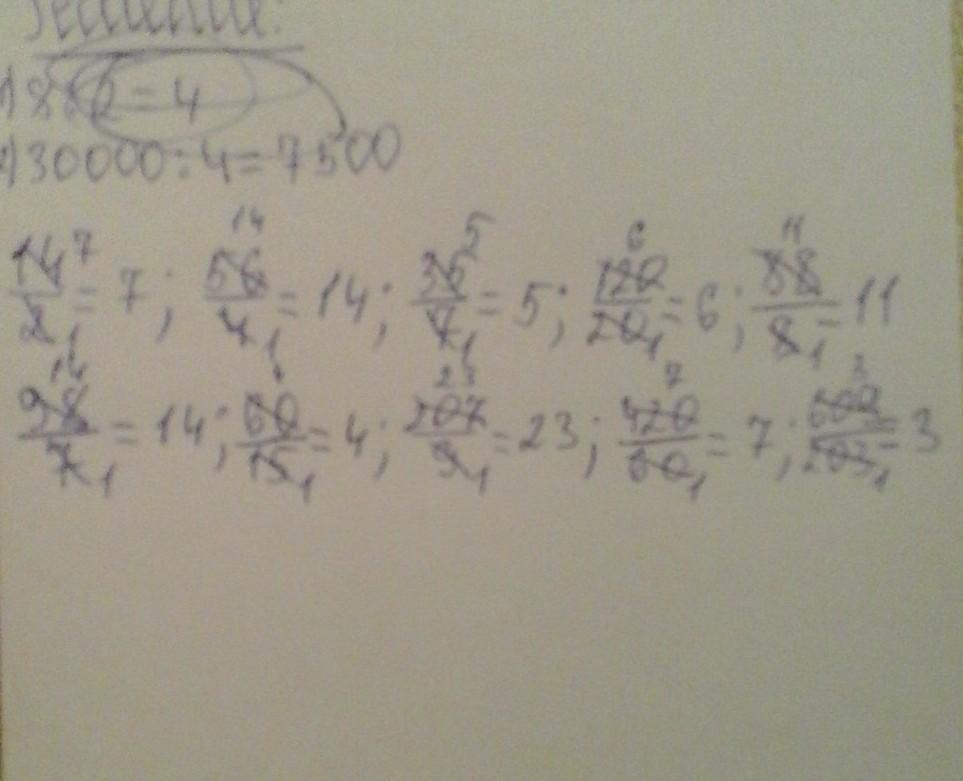 Решение:
1) 8:2=4
2) 30000:4=7500
14/2=7; 56/4=14; 35/7=5; 120/20=6; 88/8=11
98/7=14; 60/15=4; 207/9=23; 420/60=7; 609/203=3